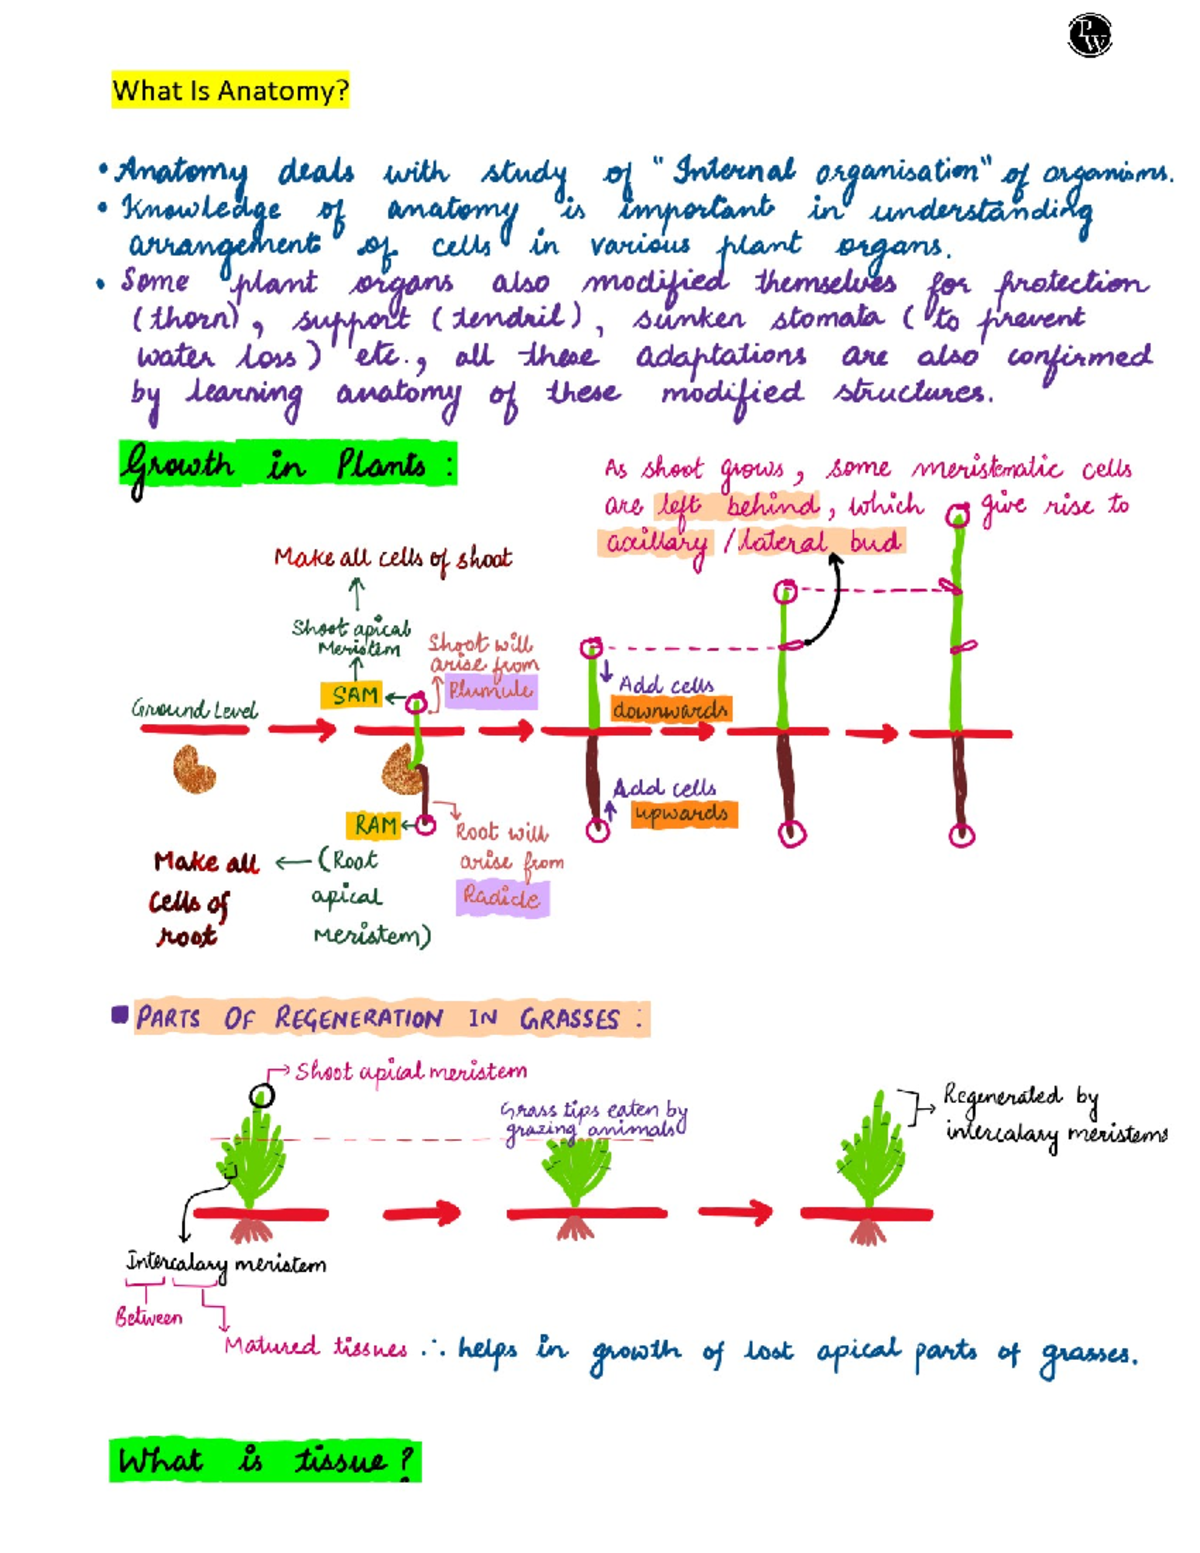 PW
What Is Anatomy?
• Anatomy deals with study of "Internal organisation" of organisms.
• Knowledge of anatomy is important in understanding
arrangement of cells in various plant organs.
• Some plant organs also modified themselves for protection
(thorn), support (tendril), sunken stomata (to prevent
water loss) etc., all these adaptations are also confirmed
by learning anatomy of these modified structures.
Growth in Plants :
As shoot grows, some meristematic cells
are left behind, which give rise to
axillary / lateral bud
Make all cells of shoot
Shoot apical
Meristem
SAM
Shoot will
arise from
Plumule
Ground Level
Add cells
downwards
Add cells
upwards
RAM
Root will
arise from
Radicle
Make all
cells of
root
(Root
apical
Meristem)
PARTS OF REGENERATION IN GRASSES :
Shoot apical meristem
Grass tips eaten by
grazing animals
Regenerated by
intercalary meristems
Intercalary meristem
Between
Matured tissues ∴ helps in growth of lost apical parts of grasses.
What is tissue?